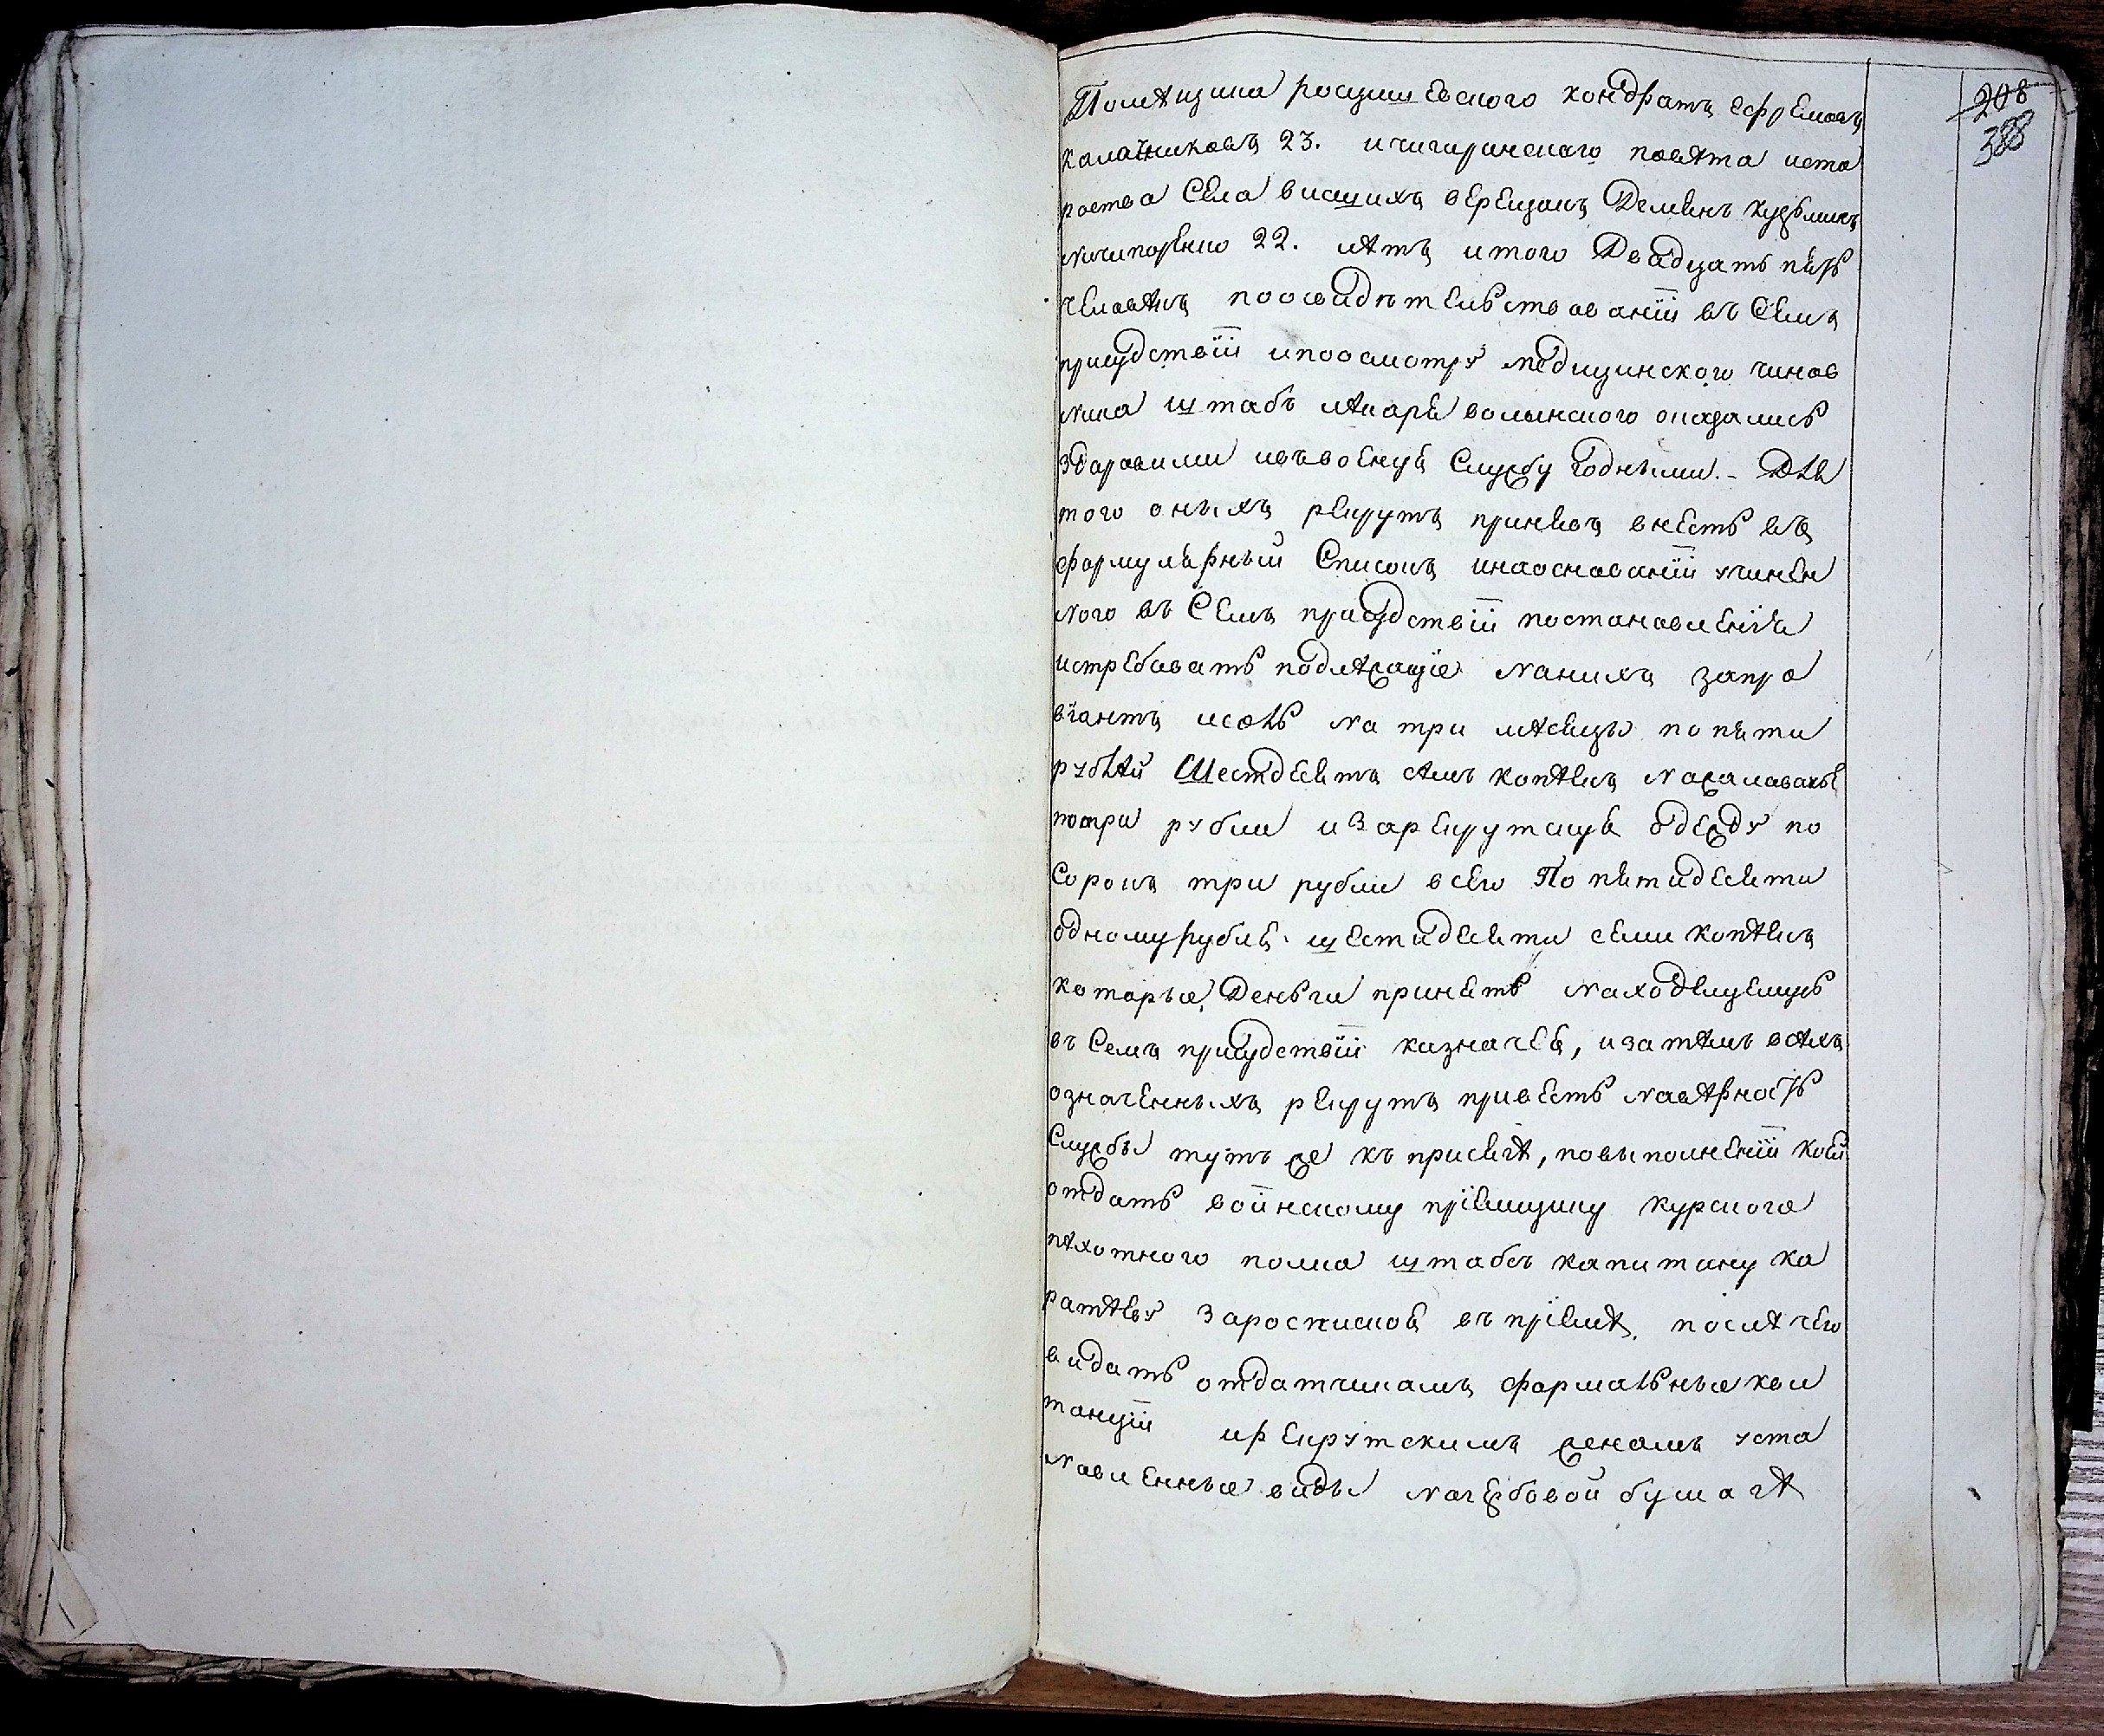 208
388
Помѣщика росцишевского кондратъ ефремовъ
калачниковъ 23. и чигиринского повѣта иста
роства Села висшихъ верещакъ Деменъ кузьминъ
ничипоренко 22. лѣтъ итого Двадцать пять
человѣкъ поосвидѣтельствованіи въ Семъ
присудствіи ипоосмотру медицинского чинов
ника штабъ лѣкаря волынского оказались
здоровими ивъвоенную Службу годными. – Для
того оныхъ рекрутъ принявъ внесть въ
формулярный Списокъ инаоснованіи учинен
ного въ Семъ присудствіи постановленія
истребовать подлѣжащіе наних запро
віантъ исоль на три мѣсяцы по пяти
рублѣй Шестдесятъ сѣмъ копѣекъ нажалованье
потри рубли изарекрутскую одежду по
Сорокъ три рубли всего По пятидесяти
одному рублю шестидесяти семи копѣекъ
которые Деньги принять находящемусь
въ Семъ присудствіи казначею, изатѣмъ всѣхъ
означенныхъ рекрутъ привесть навѣрность
Службы тутъ же къ присягѣ, повыполненіи коей
отдать воинскому пріемщику курского
пѣхотного полка штабсъ капитану ка
ратѣеву заросписскою въ пріемѣ, послѣ чего
видать отдатчикамъ формальные кви
танціи ирекрутскимъ женамъ уста
новленные виды нагербовой бумагѣ